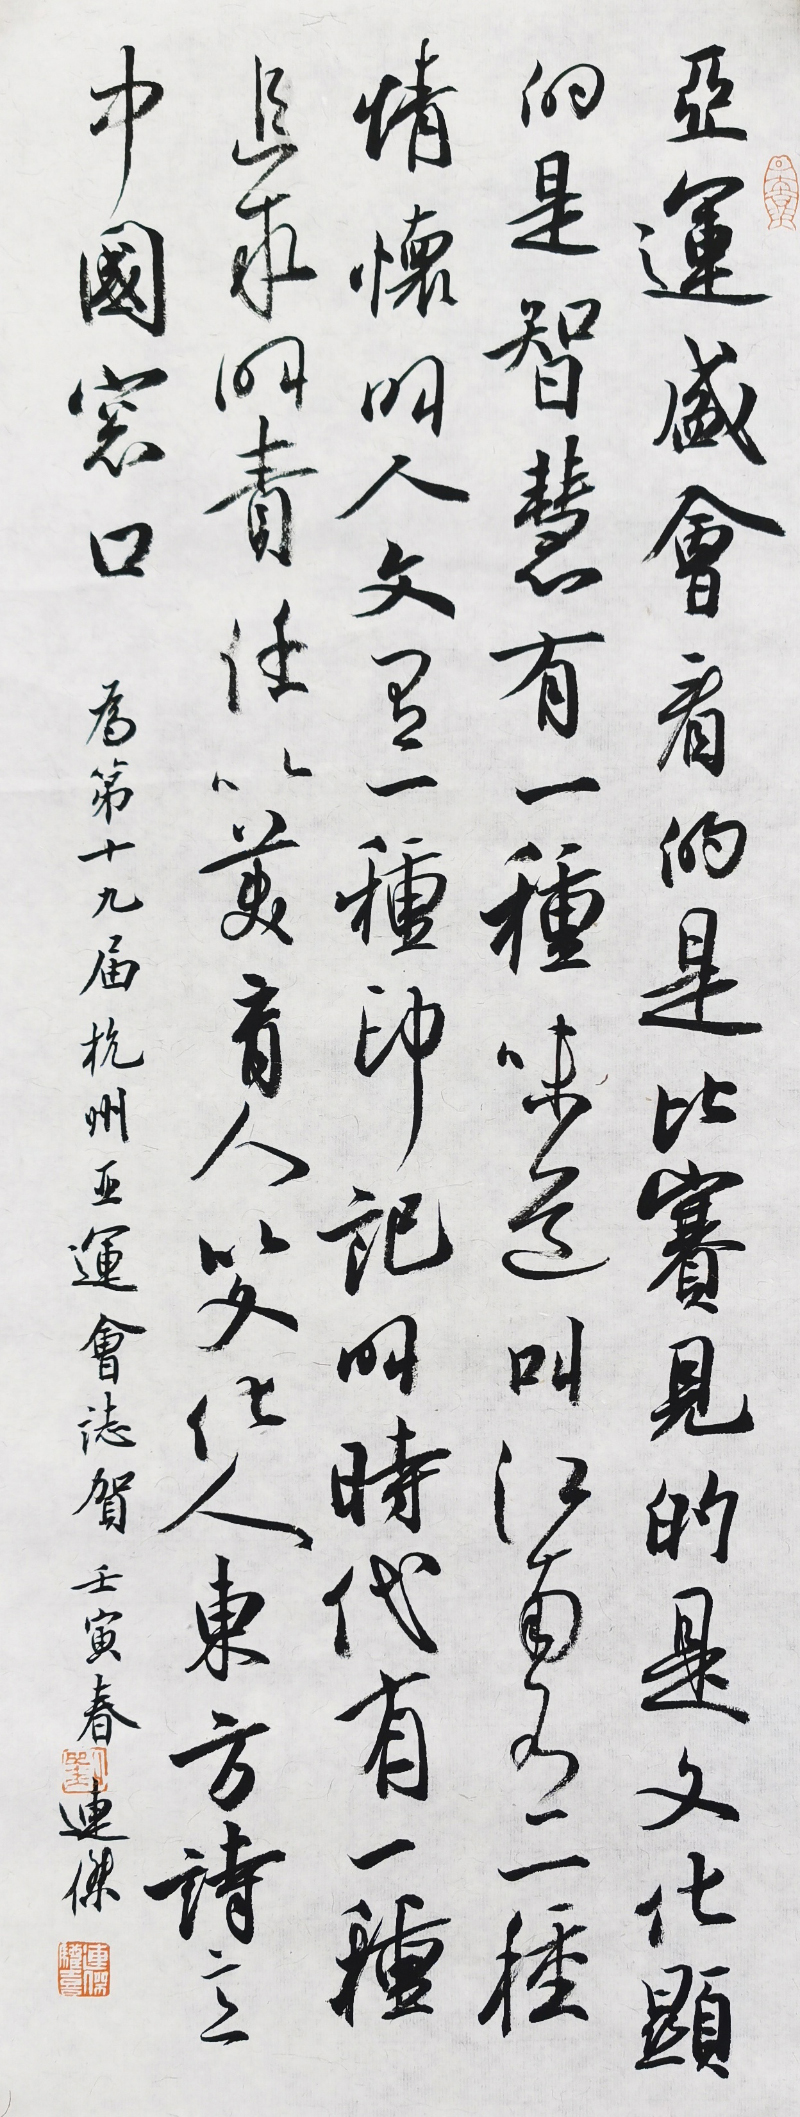 亞運盛會看的是比賽見的是文化顯
的是智慧有一種味道叫江南有一種
情懷叫人文有一種印記叫時代有一種
追求叫責任以美育人以文化人東方詩意
中國窓口
為第十九届杭州亚運會誌賀 壬寅春 連傑